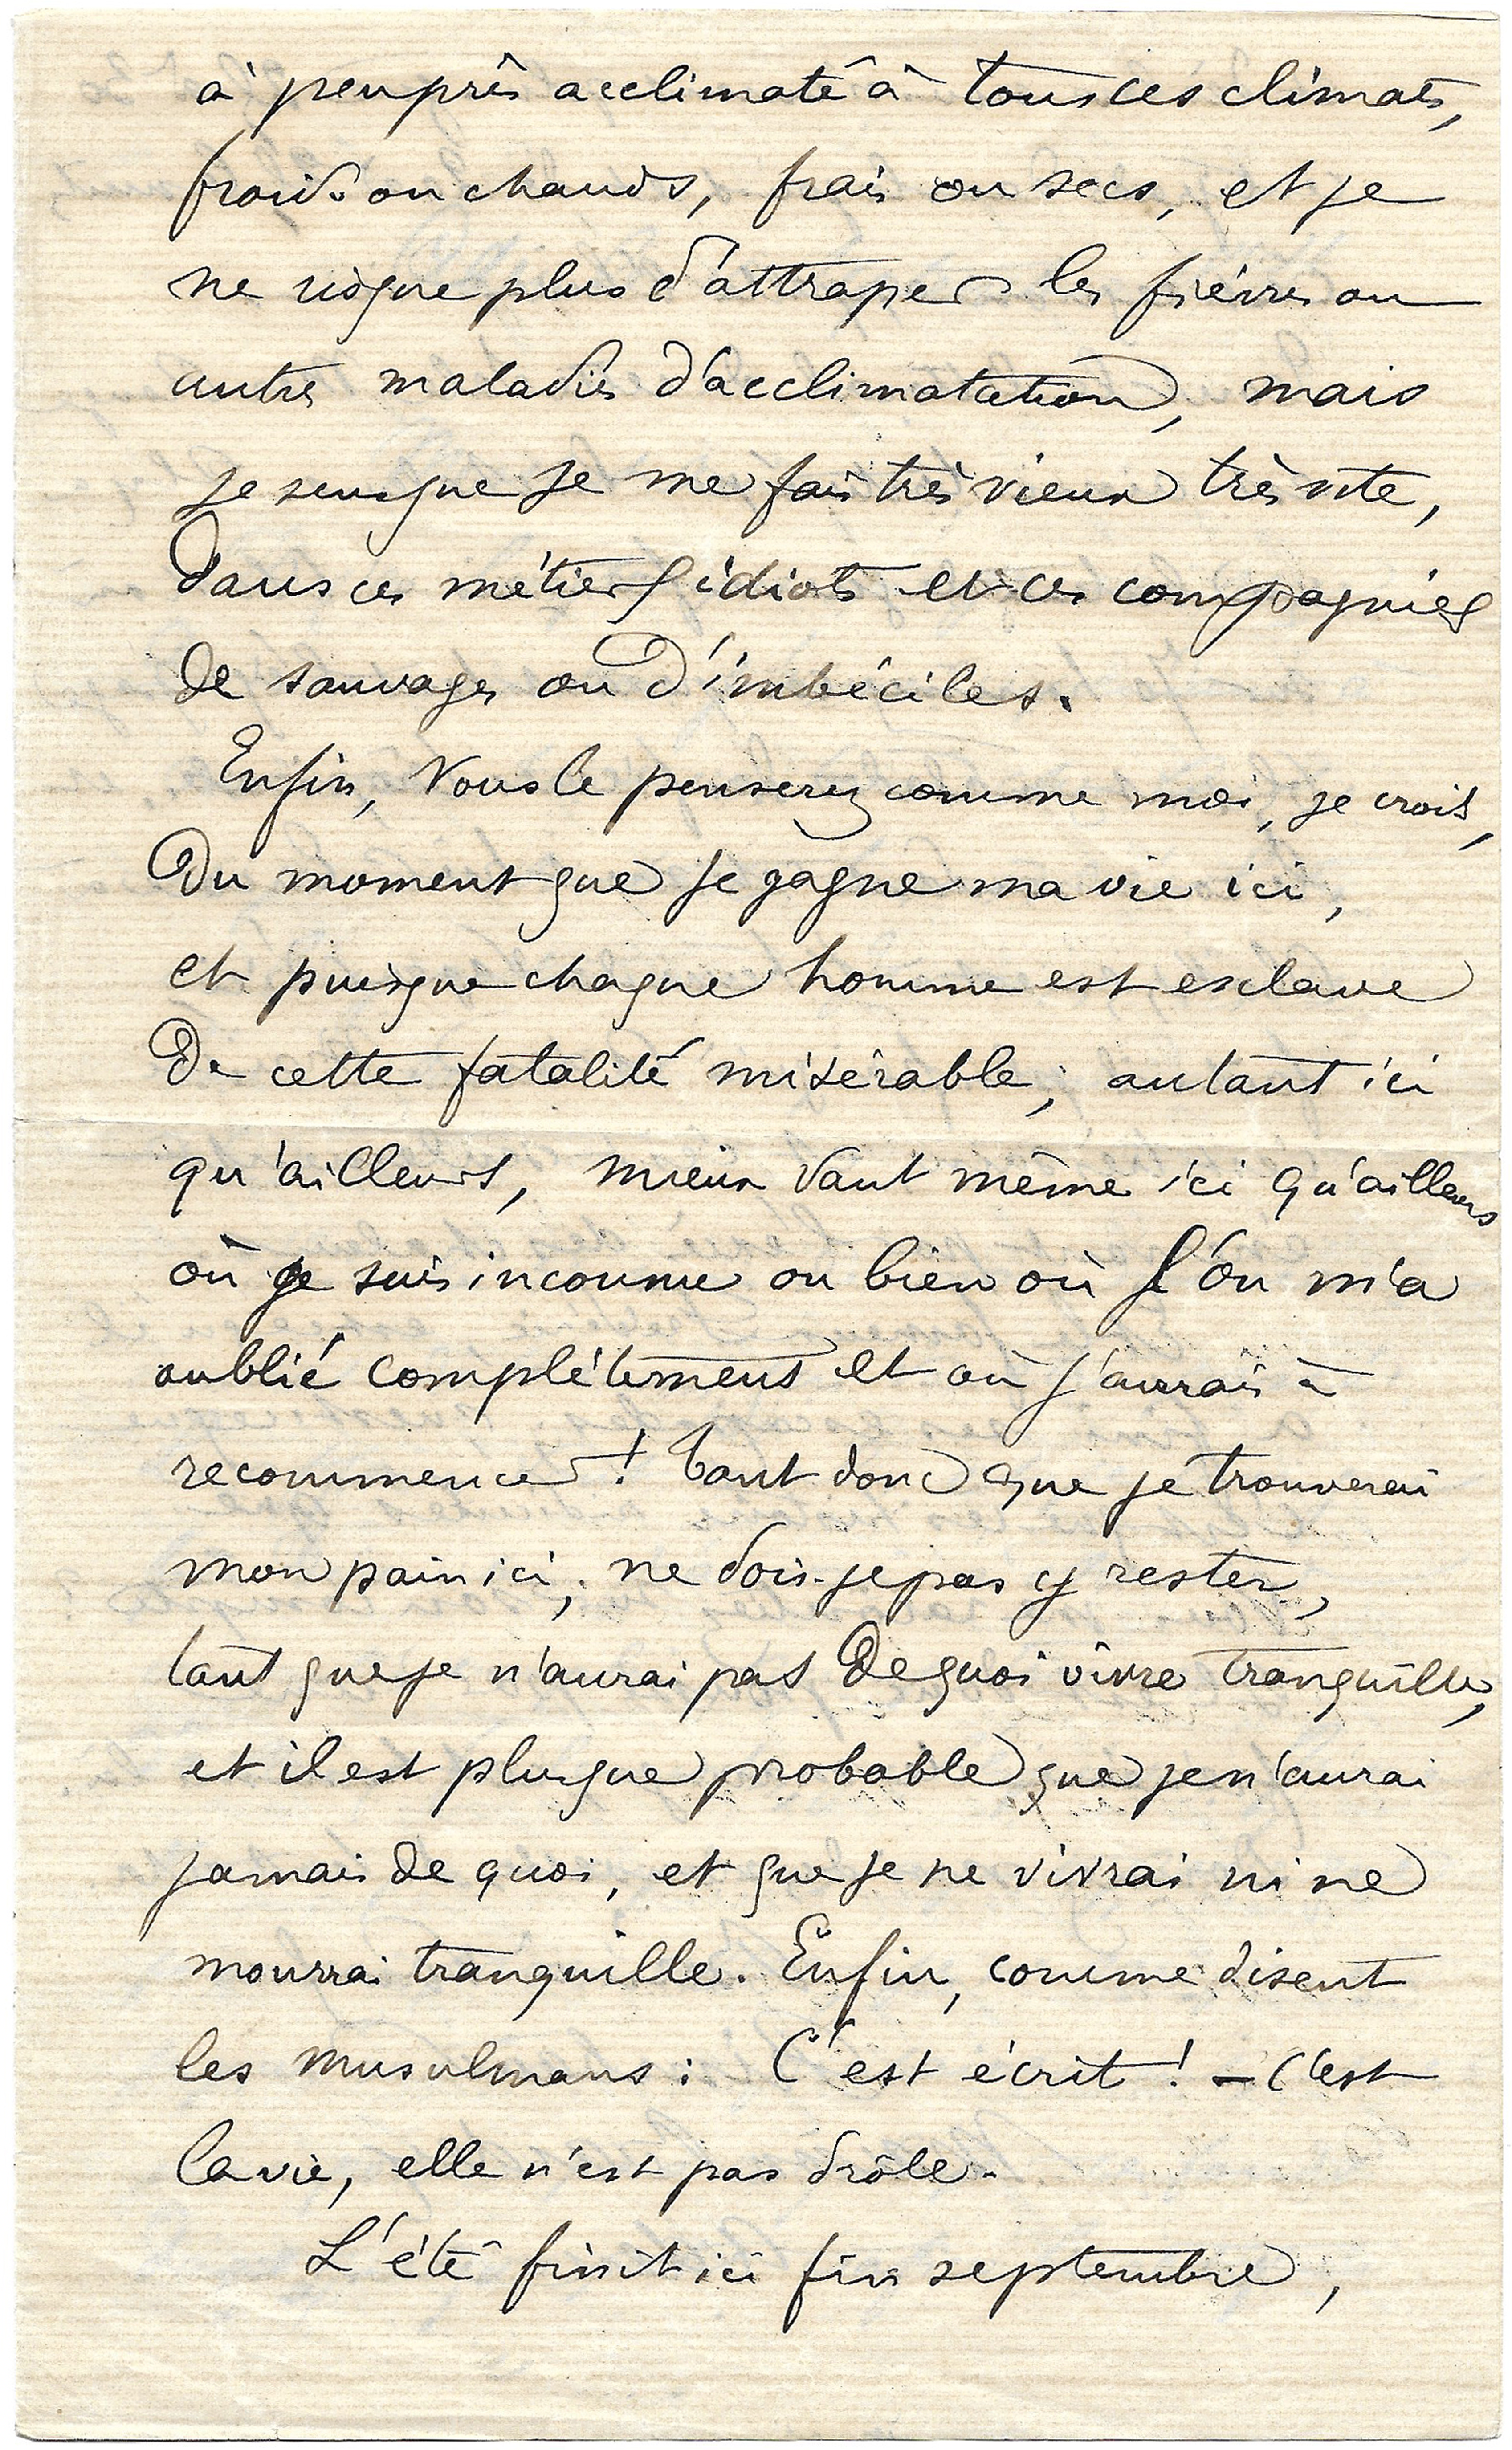 à peu près acclimaté à tous ces climats,
froids ou chauds, frais ou secs, et je
ne risque plus d'attraper les fièvres ou
autres maladies d'acclimatation, mais
je sens que je me fais très vieux très vite,
dans ces métiers idiots et ces compagnies
de sauvages ou d'imbéciles.
Enfin, vous le penserez comme moi, je crois,
Du moment que je gagne ma vie ici,
et puisque chaque homme est esclave
De cette fatalité misérable, autant ici
qu'ailleurs, mieux vaut même ici qu'ailleurs
où je suis inconnu ou bien où l'on m'a
oublié complètement et où j'aurais à
recommencer ! Tant donc que je trouverai
mon pain ici, ne dois-je pas y rester,
tant que je n'aurai pas de quoi vivre tranquille,
et il est plus que probable que je n'aurai
jamais de quoi, et que je ne vivrai ni ne
mourrai tranquille. Enfin, comme disent
les musulmans : C'est écrit ! — C'est
la vie, elle n'est pas drôle.
L'été finit ici fin septembre,